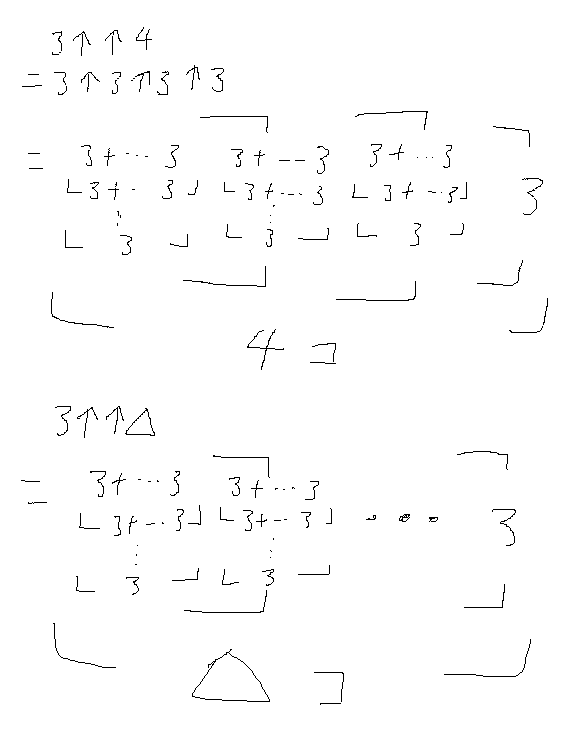 3↑↑4
=3↑3↑3↑3
= 3+…3 3+--3 3+…3
3+…3 3+…3 3+…3 3
3 3 3
4コ
3↑↑△
= 3+…3 3+…3
3+…3 3+…3 ・・・ 3
3 3
△コ